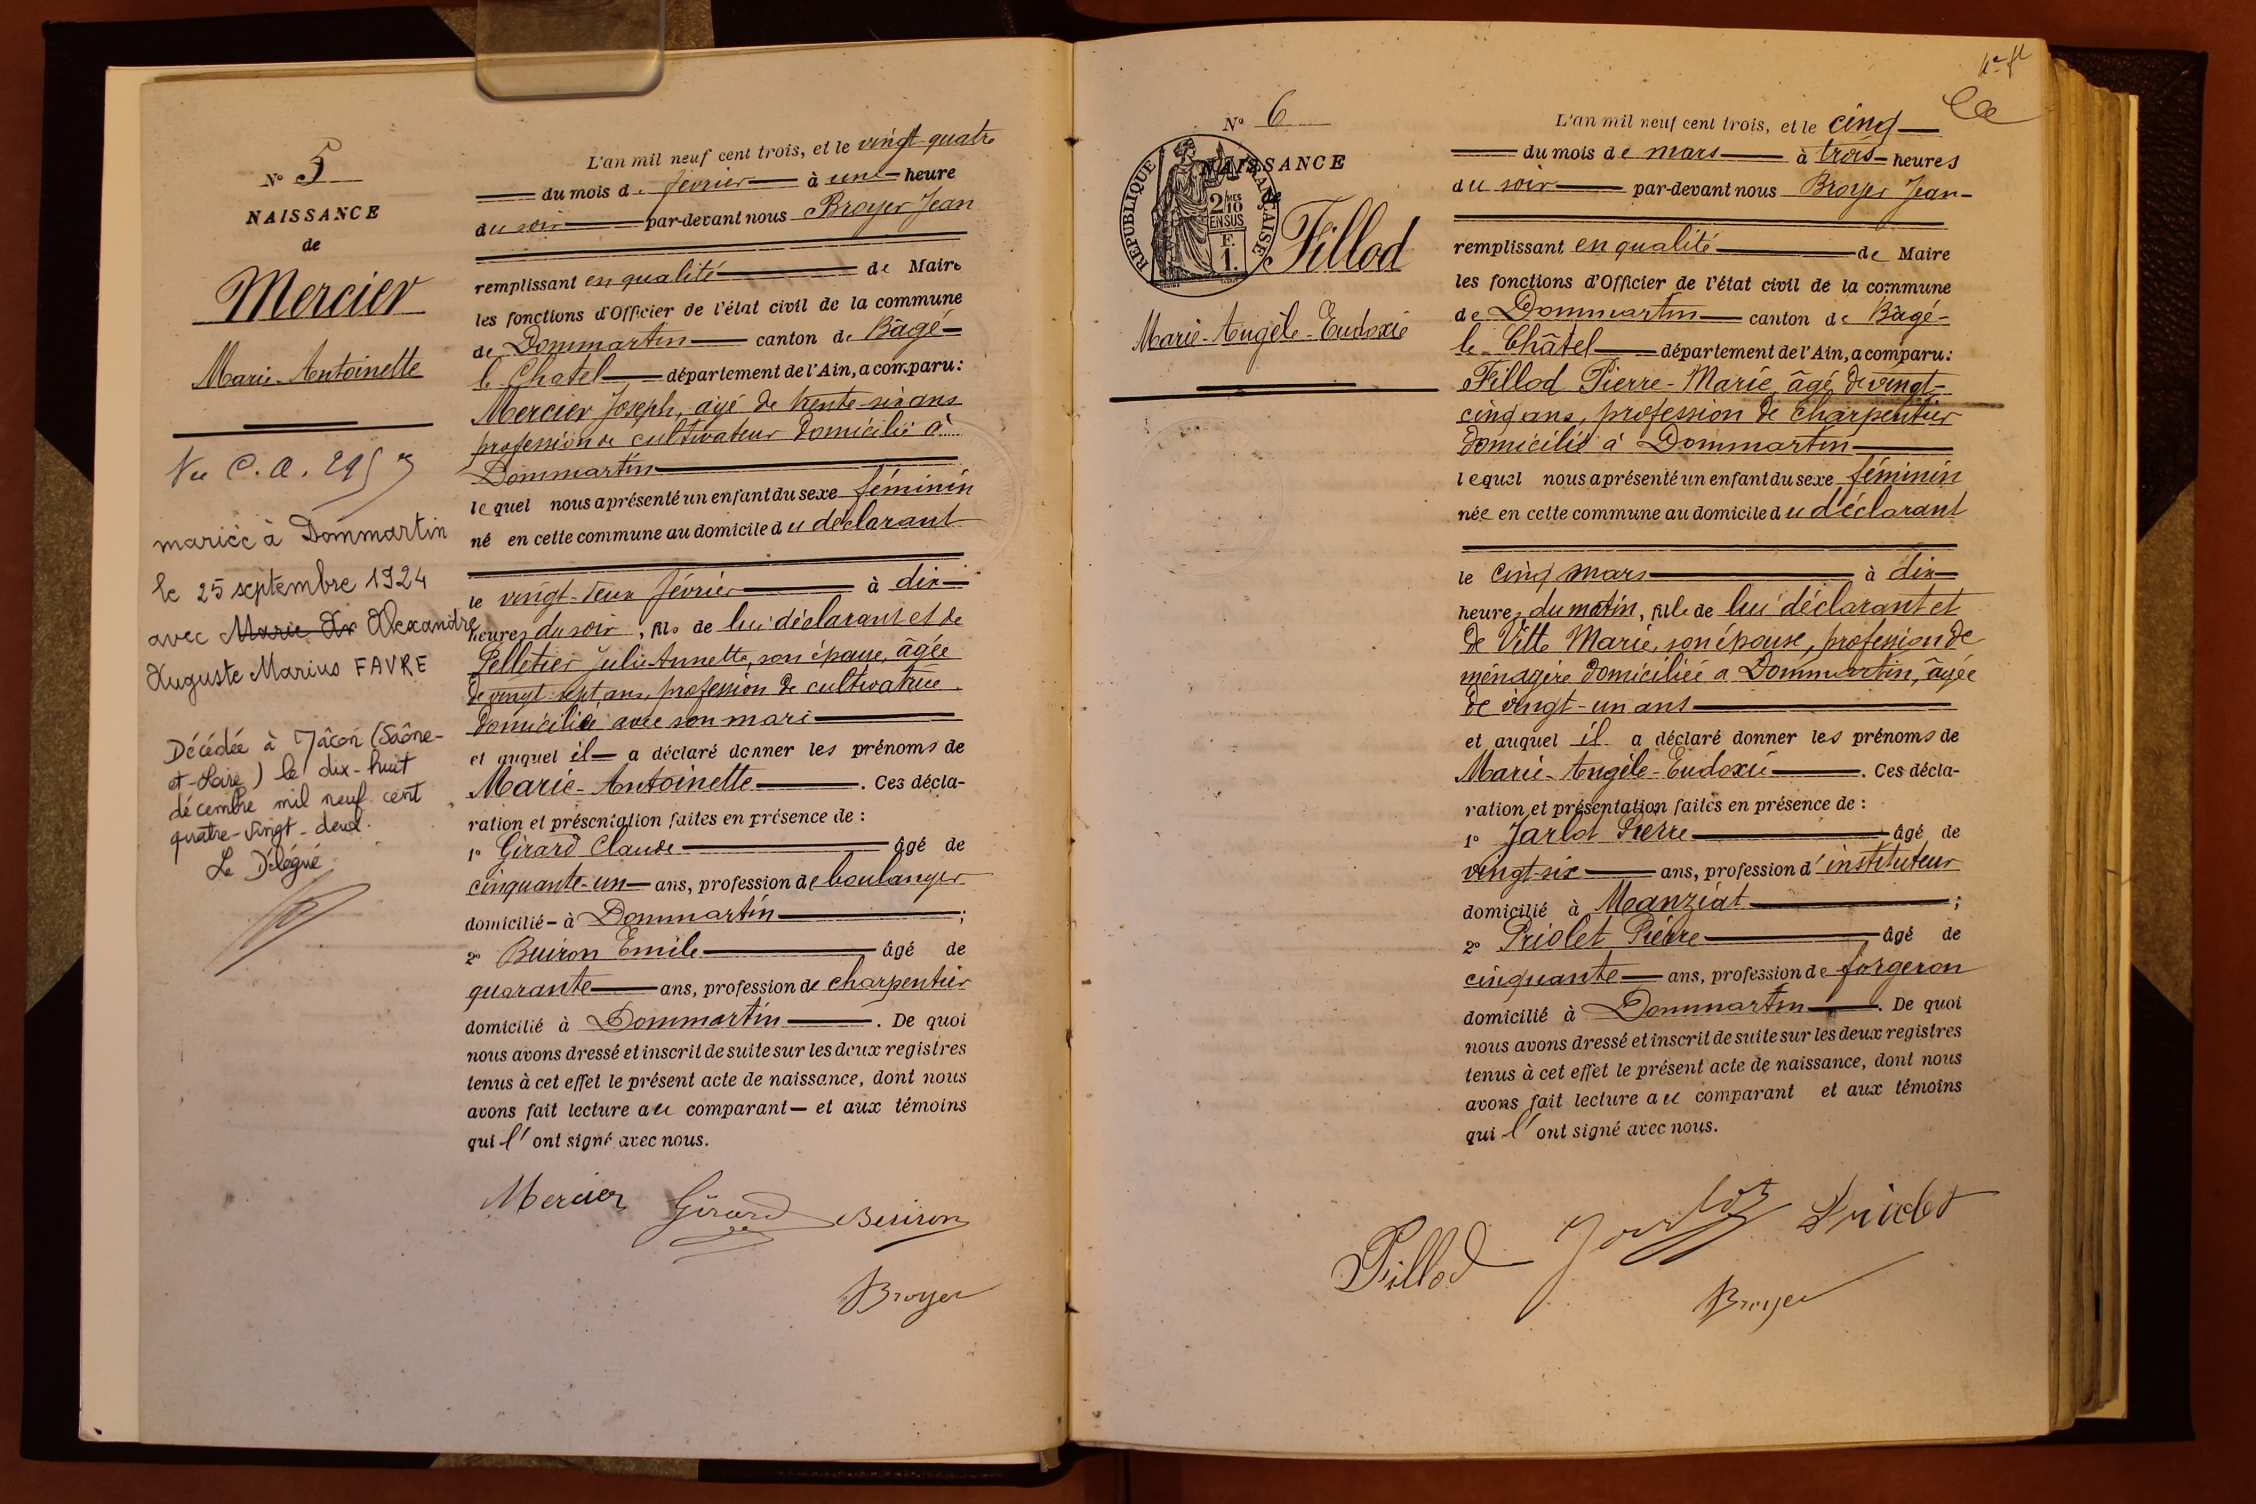 N° 5
NAISSANCE
de
Mercier
Marie-Antoinette
Vu C.A.
mariée à Dommartin
le 25 septembre 1924
avec Marie Alexandre
Auguste Marius FAVRE
Décédée à Mâcon (Saône-
et-Loire) le dix-huit
décembre mil neuf cent
quatre-vingt-deux.
Le Délégué
L'an mil neuf cent trois, et le vingt-quatre
du mois de février à une heure
du soir par-devant nous Broyer Jean
remplissant en qualité de Maire
les fonctions d'Officier de l'état civil de la commune
de Dommartin canton de Bâgé-
le Chatel département de l'Ain, a comparu:
Mercier Joseph, âgé de trente-six ans
profession de cultivateur domicilié à
Dommartin
lequel nous a présenté un enfant du sexe féminin
né en cette commune au domicile du déclarant
le vingt-deux février à dix
heures du soir, fils de lui déclarant et de
Pelletier Julie Annette, son épouse, âgée
de vingt-sept ans, profession de cultivatrice
domiciliée avec son mari
et auquel il a déclaré donner les prénoms de
Marie-Antoinette. Ces décla-
ration et présentation faites en présence de :
1° Girard Claude âgé de
cinquante-un ans, profession de boulanger
domicilié à Dommartin ;
2° Buiron Emile âgé de
quarante ans, profession de charpentier
domicilié à Dommartin. De quoi
nous avons dressé et inscrit de suite sur les deux registres
tenus à cet effet le présent acte de naissance, dont nous
avons fait lecture au comparant et aux témoins
qui l'ont signé avec nous.
Mercier Girard Buiron
Broyer
N° 6
NAISSANCE
de
REPUBLIQUE FRANÇAISE
2 MES 10
EN SUS
F.
1.
Fillod
Marie-Angèle-Eudoxie
L'an mil neuf cent trois, et le cinq
du mois de mars à trois heures
du soir par-devant nous Broyer Jean
remplissant en qualité de Maire
les fonctions d'Officier de l'état civil de la commune
de Dommartin canton de Bâgé-
le Châtel département de l'Ain, a comparu:
Fillod Pierre-Marie, âgé de vingt-
cinq ans, profession de charpentier
domicilié à Dommartin
lequel nous a présenté un enfant du sexe féminin
née en cette commune au domicile du déclarant
le cinq mars à dix
heures du matin, fille de lui déclarant et
de Vitte Marie, son épouse, profession de
ménagère domiciliée à Dommartin, âgée
de vingt-un ans
et auquel il a déclaré donner les prénoms de
Marie-Angèle-Eudoxie. Ces décla-
ration et présentation faites en présence de :
1° Jarlot Pierre âgé de
vingt-six ans, profession d'instituteur
domicilié à Manziat ;
2° Priolet Pierre âgé de
cinquante ans, profession de forgeron
domicilié à Dommartin. De quoi
nous avons dressé et inscrit de suite sur les deux registres
tenus à cet effet le présent acte de naissance, dont nous
avons fait lecture au comparant et aux témoins
qui l'ont signé avec nous.
Fillod Jarlot Priolet
Broyer